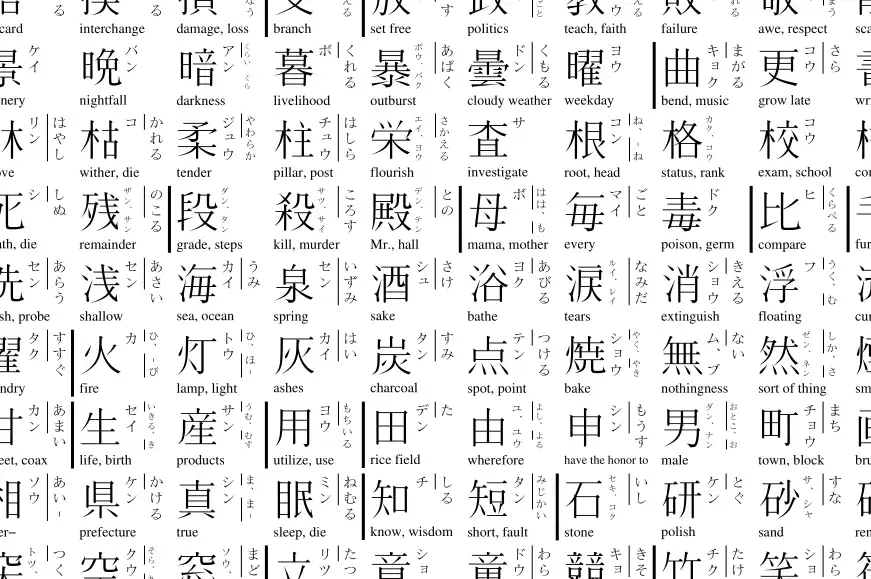 card interchange damage, loss branch set free politics teach, faith failure awe, respect
景 ケイ 晩 バン 暗 アン くらい 暮 ボ くれる 暴 ボウ、バク あばく 曇 ドン くもる 曜 ヨウ 曲 キョク まがる 更 コウ さら
nightfall darkness livelihood outburst cloudy weather weekday bend, music grow late
林 リン はやし 枯 コ かれる 柔 ジュウ やわらか 柱 チュウ はしら 栄 エイ、ヨウ さかえる 査 サ 根 コン ね、−ね 格 カク、コウ 校 コウ
wither, die tender pillar, post flourish investigate root, head status, rank exam, school
死 シ しぬ 残 ザン、サン のこる 段 ダン、タン 殺 サツ、サイ ころす 殿 デン、テン との 母 ボ はは、も 毎 マイ ごと 毒 ドク 比 ヒ くらべる
remainder grade, steps kill, murder Mr., hall mama, mother every poison, germ compare
洗 セン あらう 浅 セン あさい 海 カイ うみ 泉 セン いずみ 酒 シュ さけ 浴 ヨク あびる 涙 ルイ、レイ なみだ 消 ショウ きえる 浮 フ うく、む
shallow sea, ocean spring sake bathe tears extinguish floating
濯 タク すすぐ 火 カ ひ、−び 灯 トウ ひ、ほ− 灰 カイ はい 炭 タン すみ 点 テン つける 焼 ショウ やく、やき 無 ム、ブ ない 然 ゼン、ネン しか、さ
fire lamp, light ashes charcoal spot, point bake nothingness sort of thing
甘 カン あまい 生 セイ いきる、き 産 サン うむ むす 用 ヨウ もちいる 田 デン た 由 ユ、ユウ よし、よる 申 シン もうす 男 ダン、ナン おとこ、お 町 チョウ まち
life, birth products utilize, use rice field wherefore have the honor to male town, block
相 ソウ あい− 県 ケン かける 真 シン ま、ま− 眠 ミン ねむる 知 チ しる 短 タン みじかい 石 セキ、コク いし 研 ケン とぐ 砂 サ、シャ すな
prefecture true sleep, die know, wisdom short, fault stone polish sand
突 トツ、 つく 空 クウ そら、 窓 ソウ、 まど 立 リツ たつ 章 ショ 童 ドウ わら 競 キョ きそ 竹 チク たけ 笑 ショ わら